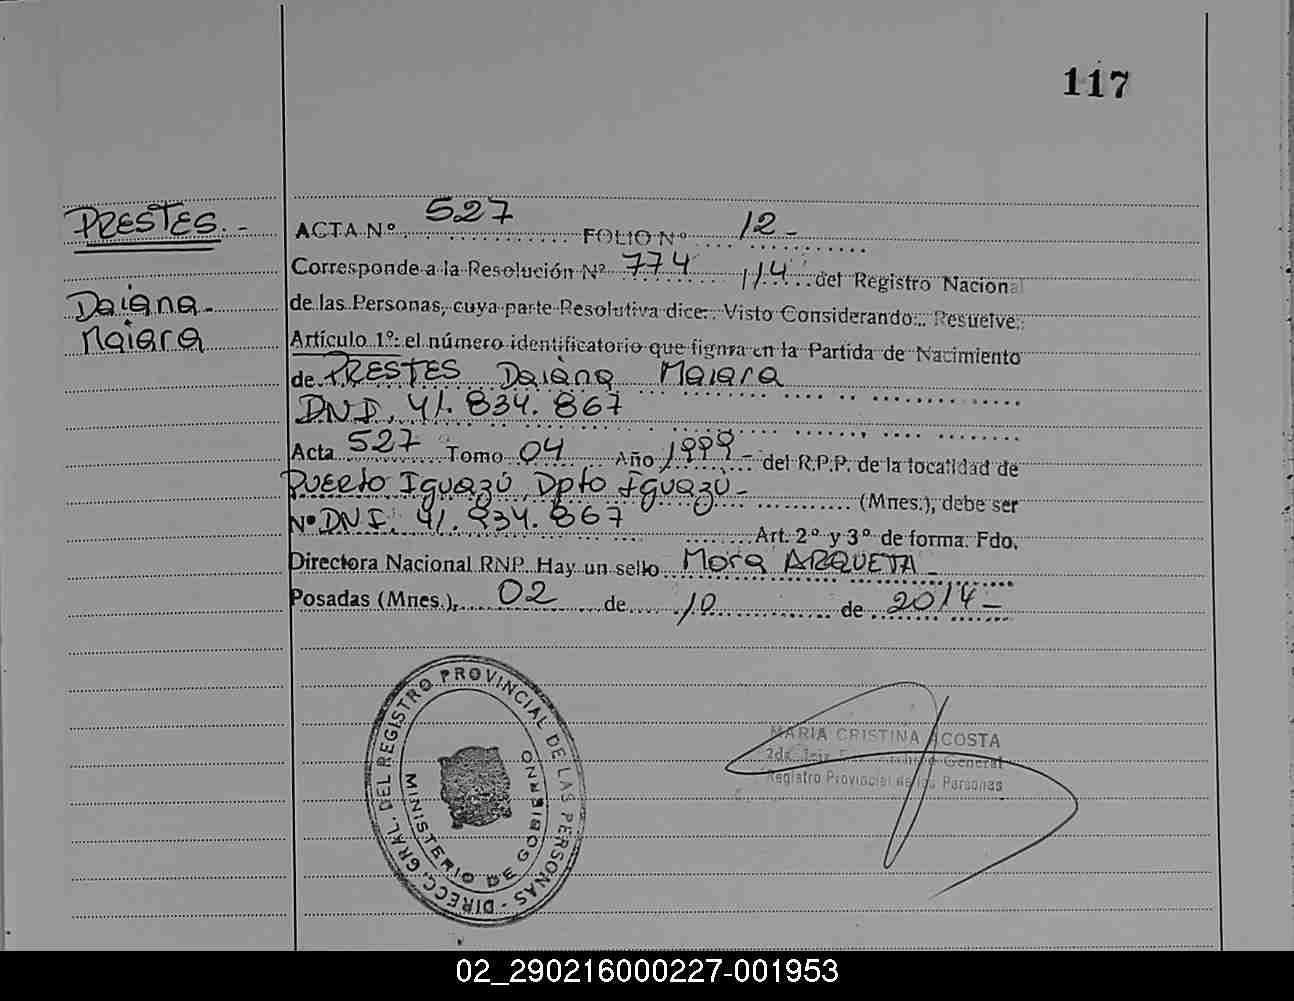 117
PRESTES.-
Daiana
Maiara
ACTA Nº 527 FOLIO Nº 12-
Corresponde a la Resolución Nº 774 /14 del Registro Nacional
de las Personas, cuya parte Resolutiva dice: Visto Considerando:.. Resuelve:
Artículo 1º: el número identificatorio que figura en la Partida de Nacimiento
de PRESTES Daiana Maiara
DNI. 41.834.867
Acta 527 Tomo 04 Año 1999- del R.P.P. de la localidad de
Puerto Iguazú, Dpto Iguazú- (Mnes.), debe ser
Nº DNI. 41.834.867 Art. 2º y 3º de forma. Fdo.
Directora Nacional RNP. Hay un sello Mora ARQUETA-
Posadas (Mnes.), 02 de 10 de 2014-
DIRECC. GRAL. DEL REGISTRO PROVINCIAL DE LAS PERSONAS -
MINISTERIO DE GOBIERNO
MARIA CRISTINA ACOSTA
2da. General
Registro Provincial de las Personas
02_290216000227-001953